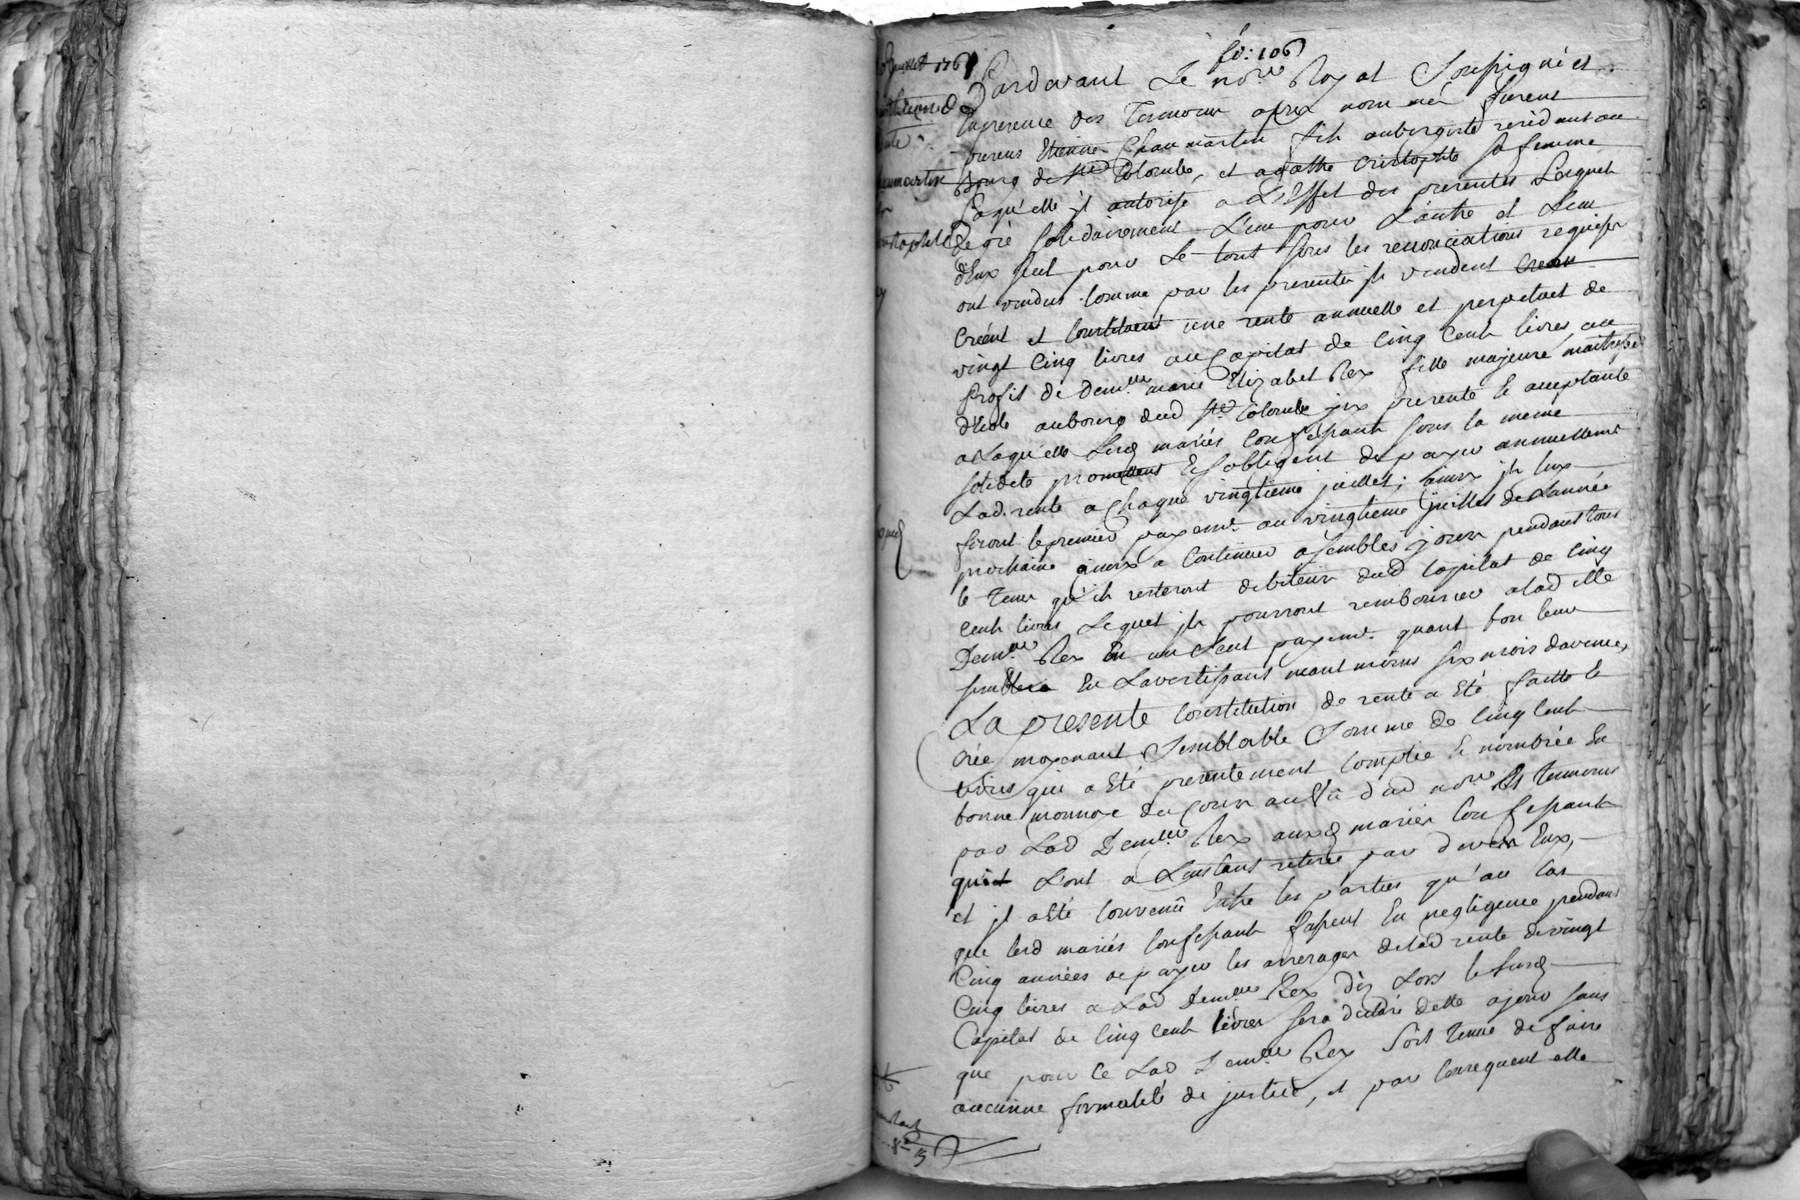 fo: 106
juillet 176
Pardevant Le no.re Royal Soussigné et
En presence des Temoins apres nommés furent
presens Etienne Chaumartin fils aubergiste residant au
Bourg de Ste Colombe, et agathe cristophle sa femme
Laquelle jl autorise a L'Effet des presentes Lesquels
De gré solidairement L'un pour L'autre et L'un
d'Eux seul pour Le tout sous les renonciations requises
ont vendus comme par les presentes jls vendent
Créent et Constituent une rente annuelle et perpetuel de
vingt Cinq livres au Capital de Cinq Cents livres, au
Profit de Dem.lle marie Elizabet Rey fille majeure maitresse
d'Ecole au bourg dud Ste Colombe jcy presente & acceptante
a Laquelle Lesd mariés Confessants sous la meme
solidité promettent & s'obligent de payer annuellemt
Lad. rente a Chaque vingtieme juillet; ainsy jls luy
feront le premier payemt. au vingtieme juillet de L'année
prochaine ainsy a Continuer a semblables jours pendant tous
le Tems qu'ils resteront debiteurs dud Capital de Cinq
Cents livres Lequel jls pourront rembourser a lad
Dem.lle Rey En un seul payemt. quant bon leur
semblera En L'avertissant mais six mois d'avance,
La presente Constitution de rente a Eté faitte &
crée moyenant Semblable Somme de Cinq Cents
livres qui a Eté presentement Comptée & nombrée En
bonne monnoye du Cours au Vû dud no.re & Temoins
par Lad Dem.lle Rey auxd mariés Confessants
qui L'ont a L'instant retirée par devers Eux,
et jl a Eté Convenû Entre les parties qu'au Cas
que lesd mariés Confessants fussent En negligence pendant
Cinq années de payer les arrerages de lad rente de vingt
Cinq livres a Lad Dem.lle Rey dès Lors le susd
Capital de Cinq Cents livres sera declaré dette a jour sans
que pour Ce Lad Dem.lle Rey soit Tenue de faire
aucunne formalité de justice, et par Consequent elle